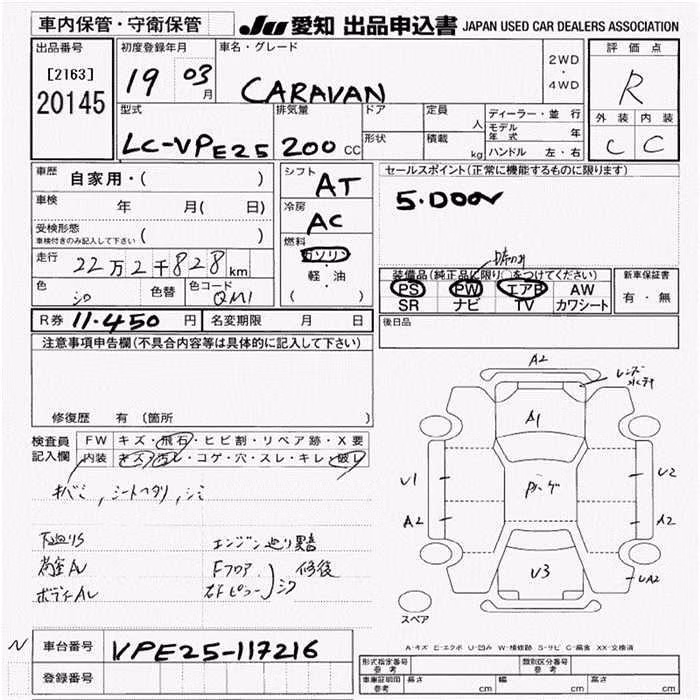 車内保管・守衛保管
JU 愛知 出品申込書 JAPAN USED CAR DEALERS ASSOCIATION
出品番号
[2163]
20145
初度登録年月
19 03月
車名・グレード
CARAVAN
2WD
・
4WD
評価点
R
外装 内装
C C
型式
LC-VPE25
排気量
200 CC
ドア
形状
定員
人
積載
kg
ディーラー・並行
モデル年式 年
ハンドル 左・右
車歴
自家用・( )
車検
年 月( 日)
受検形態
車検付きのみ記入して下さい ( )
走行
22万2千828km
色
シロ
色替
色コード
QM1
シフト
AT
冷房
AC
燃料
ガソリン
軽・油
( )
セールスポイント(正常に機能するものに限ります)
5.DOOR
装備品(純正品に限り○をつけてください)
PS PW エアB AW
SR ナビ TV カワシート
新車保証書
有・無
後日品
R券 11.450円
名変期限 月 日
注意事項申告欄(不具合内容等は具体的に記入して下さい)
修復歴 有 (箇所 )
検査員
記入欄
FW キズ・飛石・ヒビ割・リペア跡・X要
内装 キズ・汚レ・コゲ・穴・スレ・キレ・破レ
キバミ、シートヘタリ、シミ
下廻りS
荷室AU
エンジン廻り異音
Fフロア
修後
A2
A1
U1
U2
A2
A2
U3
UA2
スペア
A-キズ E-エクボ U-凹み W-補修跡 S-サビ C-腐食 XX-交換済
N
車台番号
VPE25-117216
登録番号
形式指定番号
参考
類別区分番号
参考
車庫証明用
参考
長さ cm
幅 cm
高さ cm